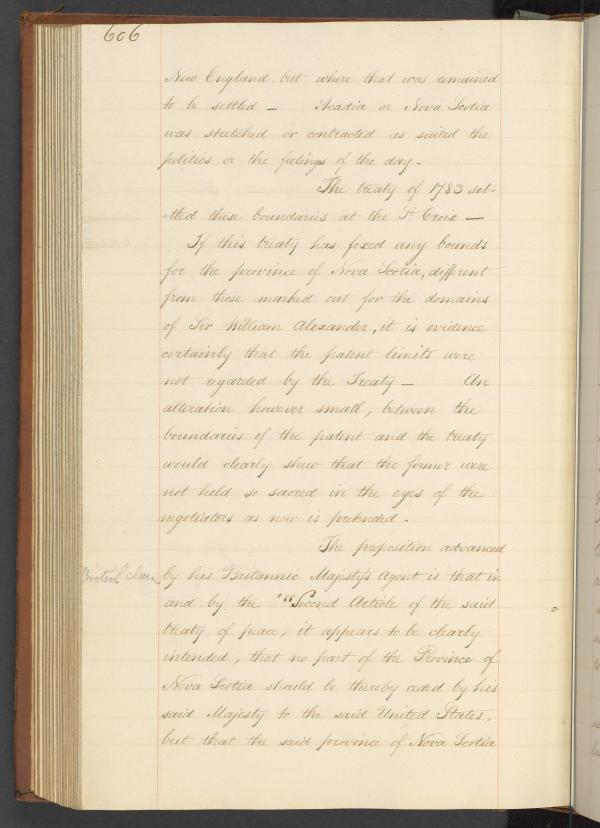 606
New England but where that was remained
to be settled — Acadia or Nova Scotia
was stretched or contracted as suited the
politics or the feelings of the day -
The treaty of 1783 set-
-tled these boundaries at the St. Croix —
If this treaty has fixed any bounds
for the province of Nova Scotia, different
from those marked out for the domains
of Sir William Alexander, it is evidence
certainly that the patent limits were
not regarded by the Treaty — An
alteration however small, between the
boundaries of the patent and the treaty
would clearly shew that the former were
not held so sacred in the eyes of the
negotiators as now is pretended.
The proposition advanced
British claim
by his Britannic Majesty's Agent is that in
and by the "Second Article of the said
treaty of peace, it appears to be clearly
intended, that no part of the Province of
Nova Scotia should be thereby ceded by his
said Majesty to the said United States,
but that the said province of Nova Scotia